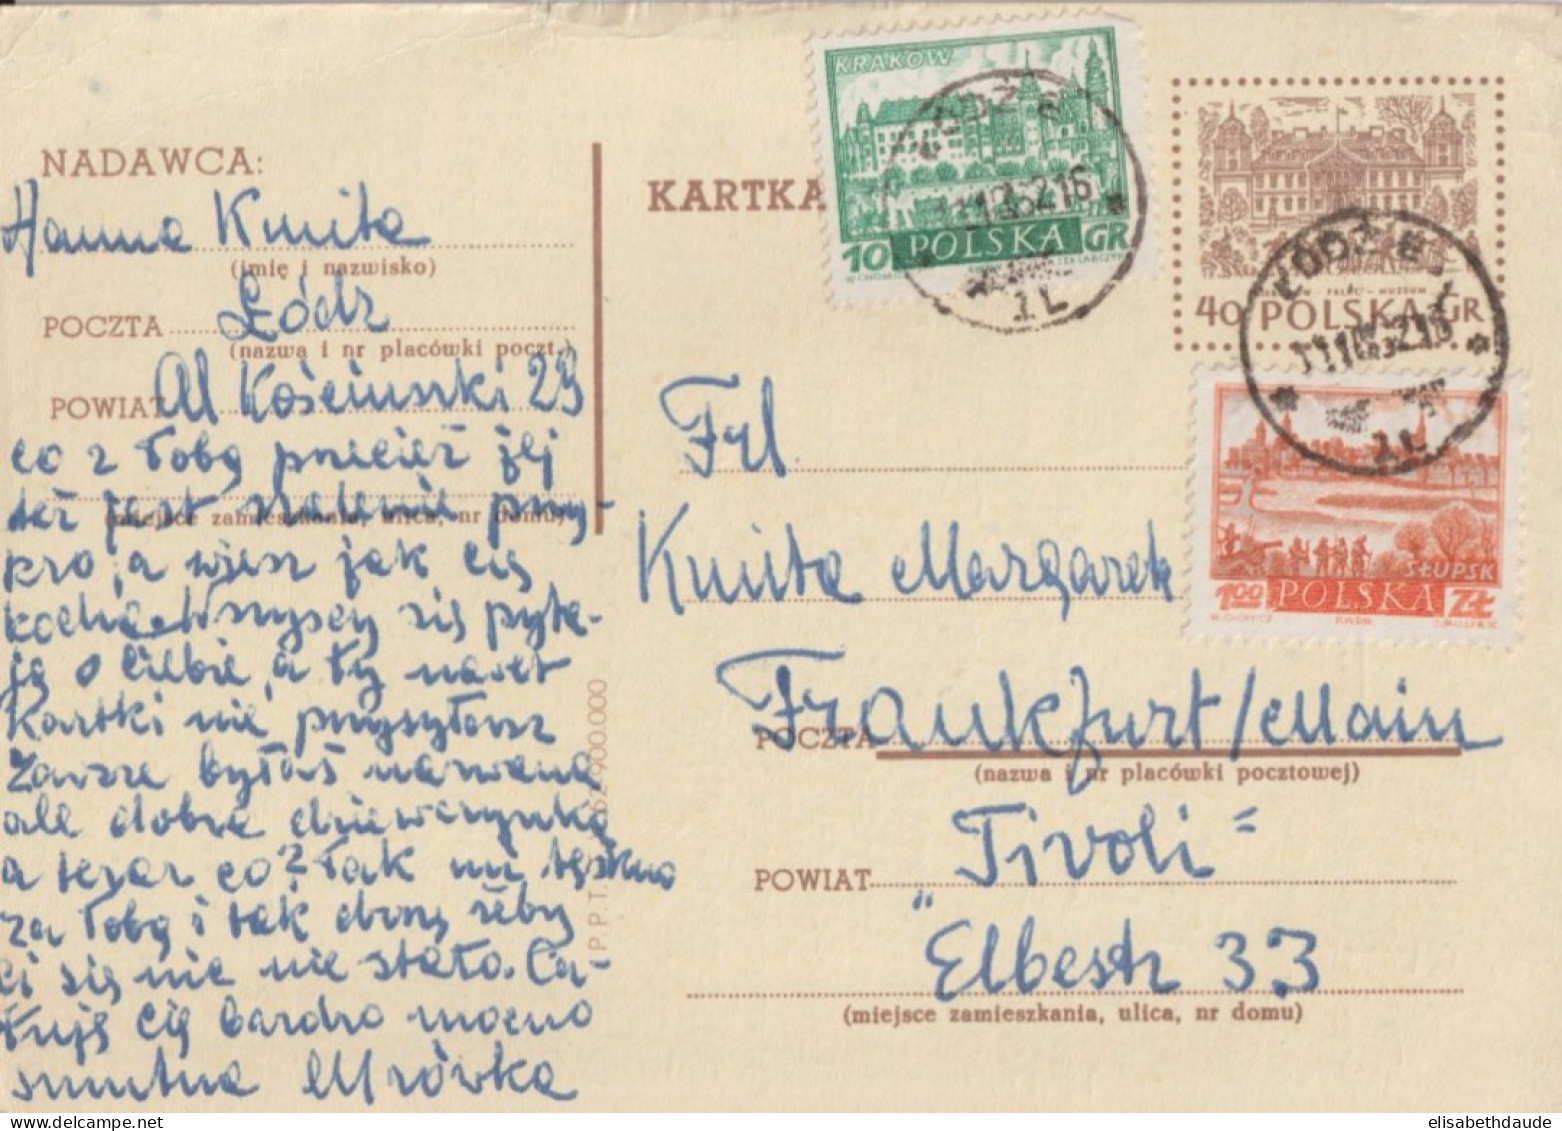 NADAWCA:
Hanna Kmita
(imię i nazwisko)
POCZTA Łódz
(nazwa i nr placówki poczt.)
POWIAT Al Kościuszki 29
co z Tobą przecież jej
też jest szalenie przy-
(miejsce zamieszkania, ulica, nr domu)
kro, a wiesz jak cię
kocha. Wszyscy się pyta-
ją o Ciebie, a ty nawet
Kartki nie przysyłasz
Zawsze byłaś
ale dobra dziewczynka
a teraz co? Tak mi tęskno
za Tobą i tak drżę żeby
ci się nic nie stało. Ca-
łuję Cię bardzo mocno
smutna Mrówka
P.P.T. 900.000
KARTKA
KRAKÓW
10 POLSKA GR
ŁÓDŹ
1Ł
40 POLSKA GR
ŁÓDŹ
1Ł
SŁUPSK
1.00 POLSKA ZŁ
Frl
Kmita Margarete
POCZTA Frankfurt/Main
(nazwa i nr placówki pocztowej)
POWIAT "Tivoli"
Elbestr 33
(miejsce zamieszkania, ulica, nr domu)
elisabethdaude